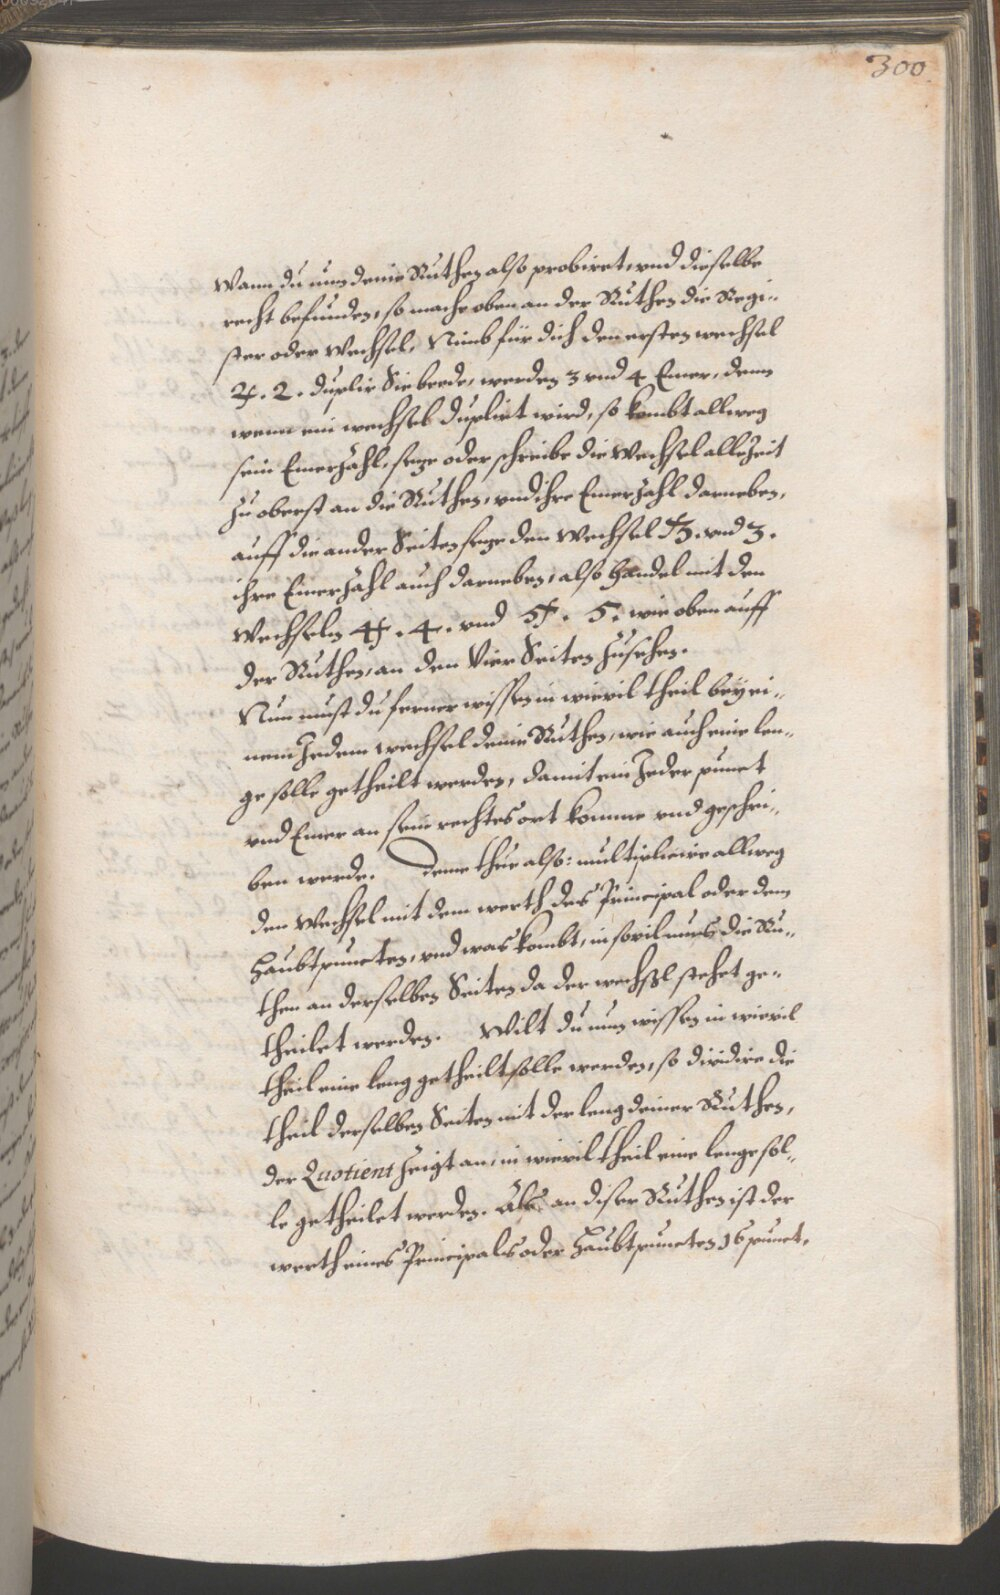 300
Wann du nun deine Ruthen also probiret, und dieselbe
recht befunden, so mache oben an der Ruthen die Regi-
ster oder Wechsel, Nimb für dich den ersten wechsel
2. duplir Sie beede, werden 3 und 4 Emer, denn
wenn ein wechsel duplirt wird, so kombt allweg
sein Emerzahl, seze oder schreibe die Wechsel allezeit
zu oberst an die Ruthen, und ihre Emerzahl darneben,
auff die ander Seiten seze den Wechsel und 3.
ihre Emerzahl auch darneben, also handel mit den
Wechseln 4. und 5. wie oben auff
der Ruthen, an den Vier Seiten zusehen.
Nun must du ferner wissen in wievil theil bey ei-
nem Jedem wechsel deine Ruthen, wie auch eine len-
ge solle getheilt werden, damit ein Jeder punct
und Emer an sein rechtes ort komme und geschri-
ben werde. deme thue also: multiplicire allweg
den Wechsel mit dem werth des Principal oder dem
Haubtpuncten, und was kombt, in sovil mus die Ru-
then an derselben Seiten da der wechsel stehet ge-
theilet werden. Wilt du nun wissen in wievil
theil eine leng getheilt solle werden, so dividire die
theil derselben Seiten mit der leng deiner Ruthen,
der Quotient zeigt an, in wievil theil eine lenge sol-
le getheilet werden. Als an diser Ruthen ist der
werth eines Principals oder Haubtpuncten 16 punct.